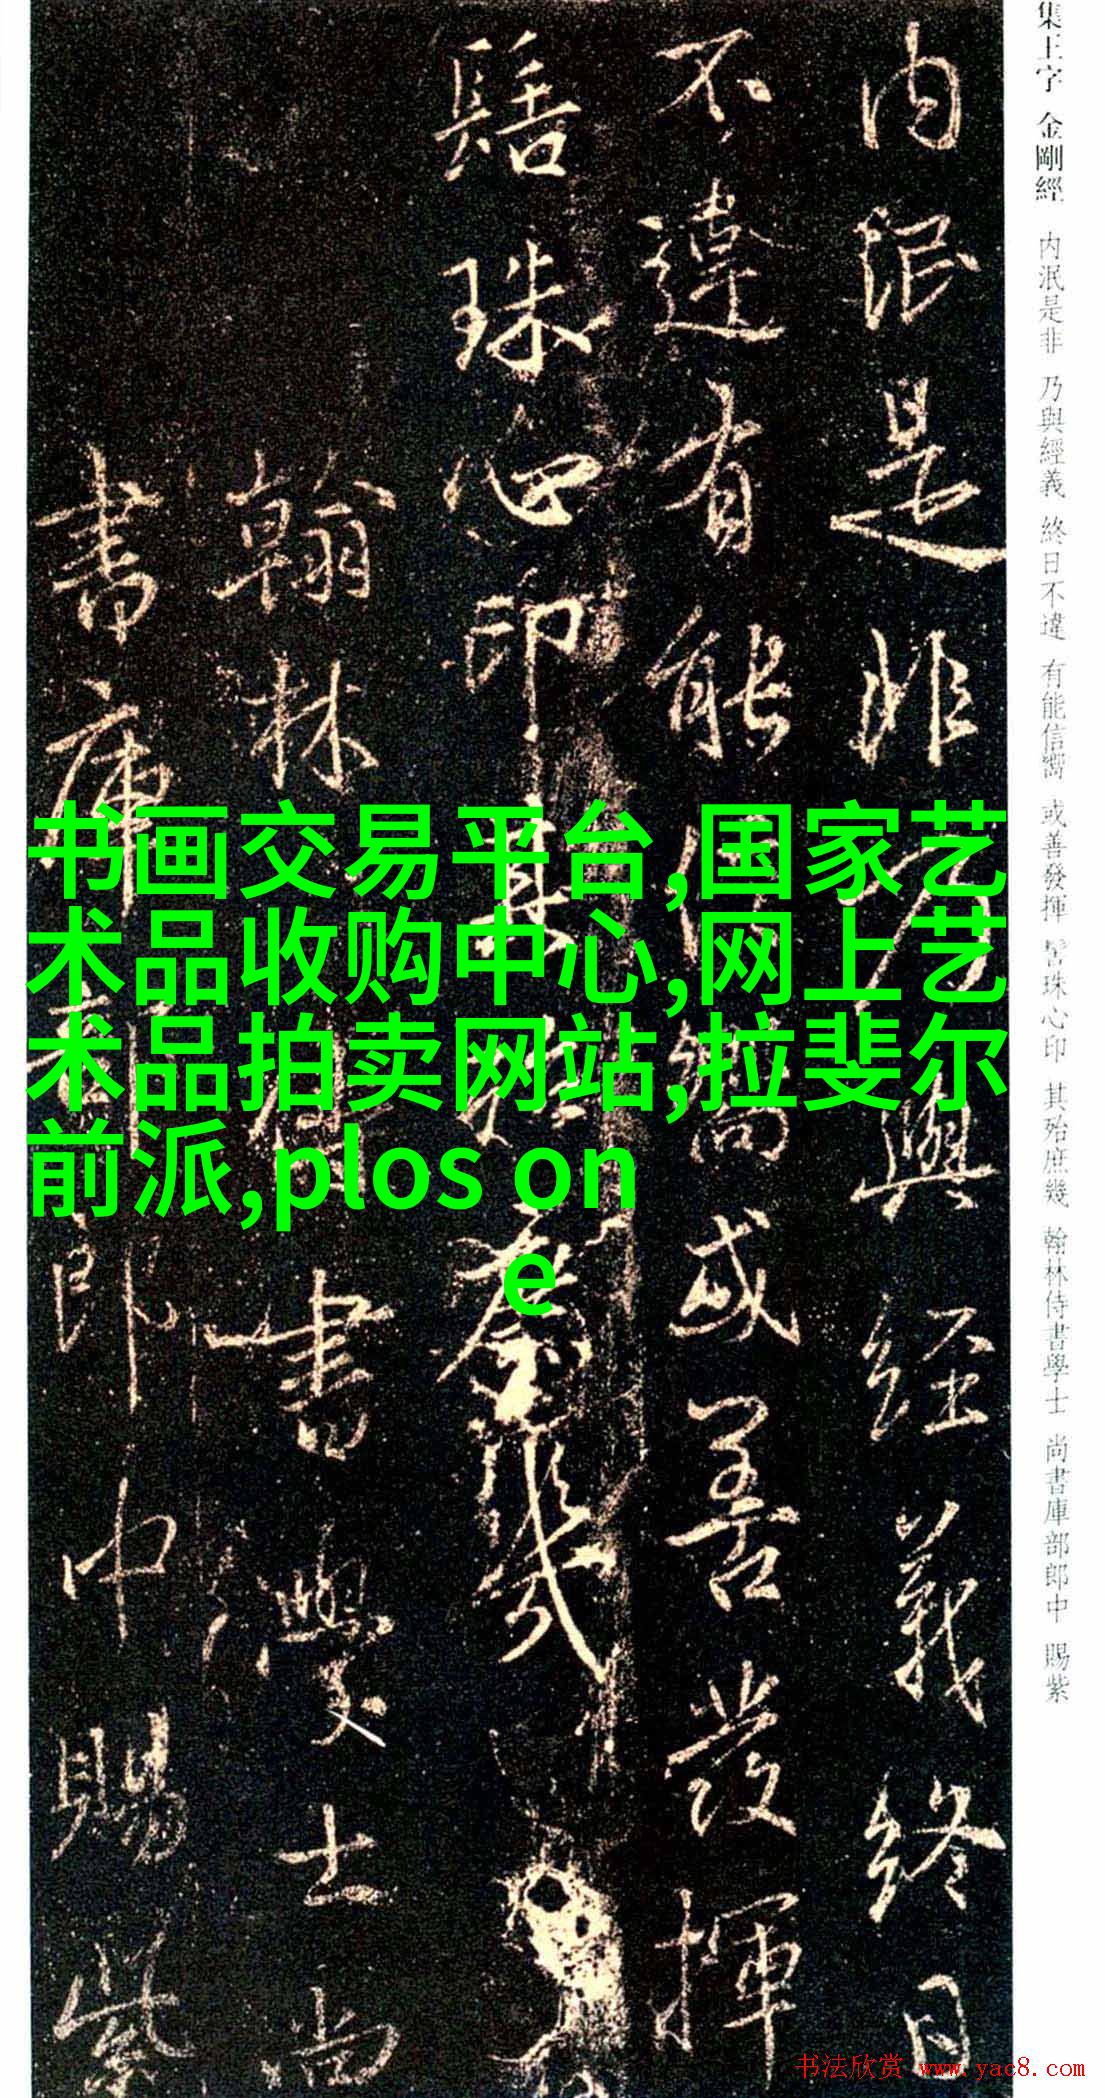 集王字 金剛經 内泯是非 乃與經義 終日不違 有能信嚮 或善發揮 髻珠心印 其殆庶幾 翰林侍書學士 尚書庫部郎中 賜紫
内泯是非乃與經義終日
不違有能信嚮或善發揮
髻珠心印其殆庶幾
翰林侍書學士尚
書庫部郎中賜紫
书画交易平台,国家艺
术品收购中心,网上艺
术品拍卖网站,拉斐尔
前派,plos on
e
书法欣赏 www.yac8.com